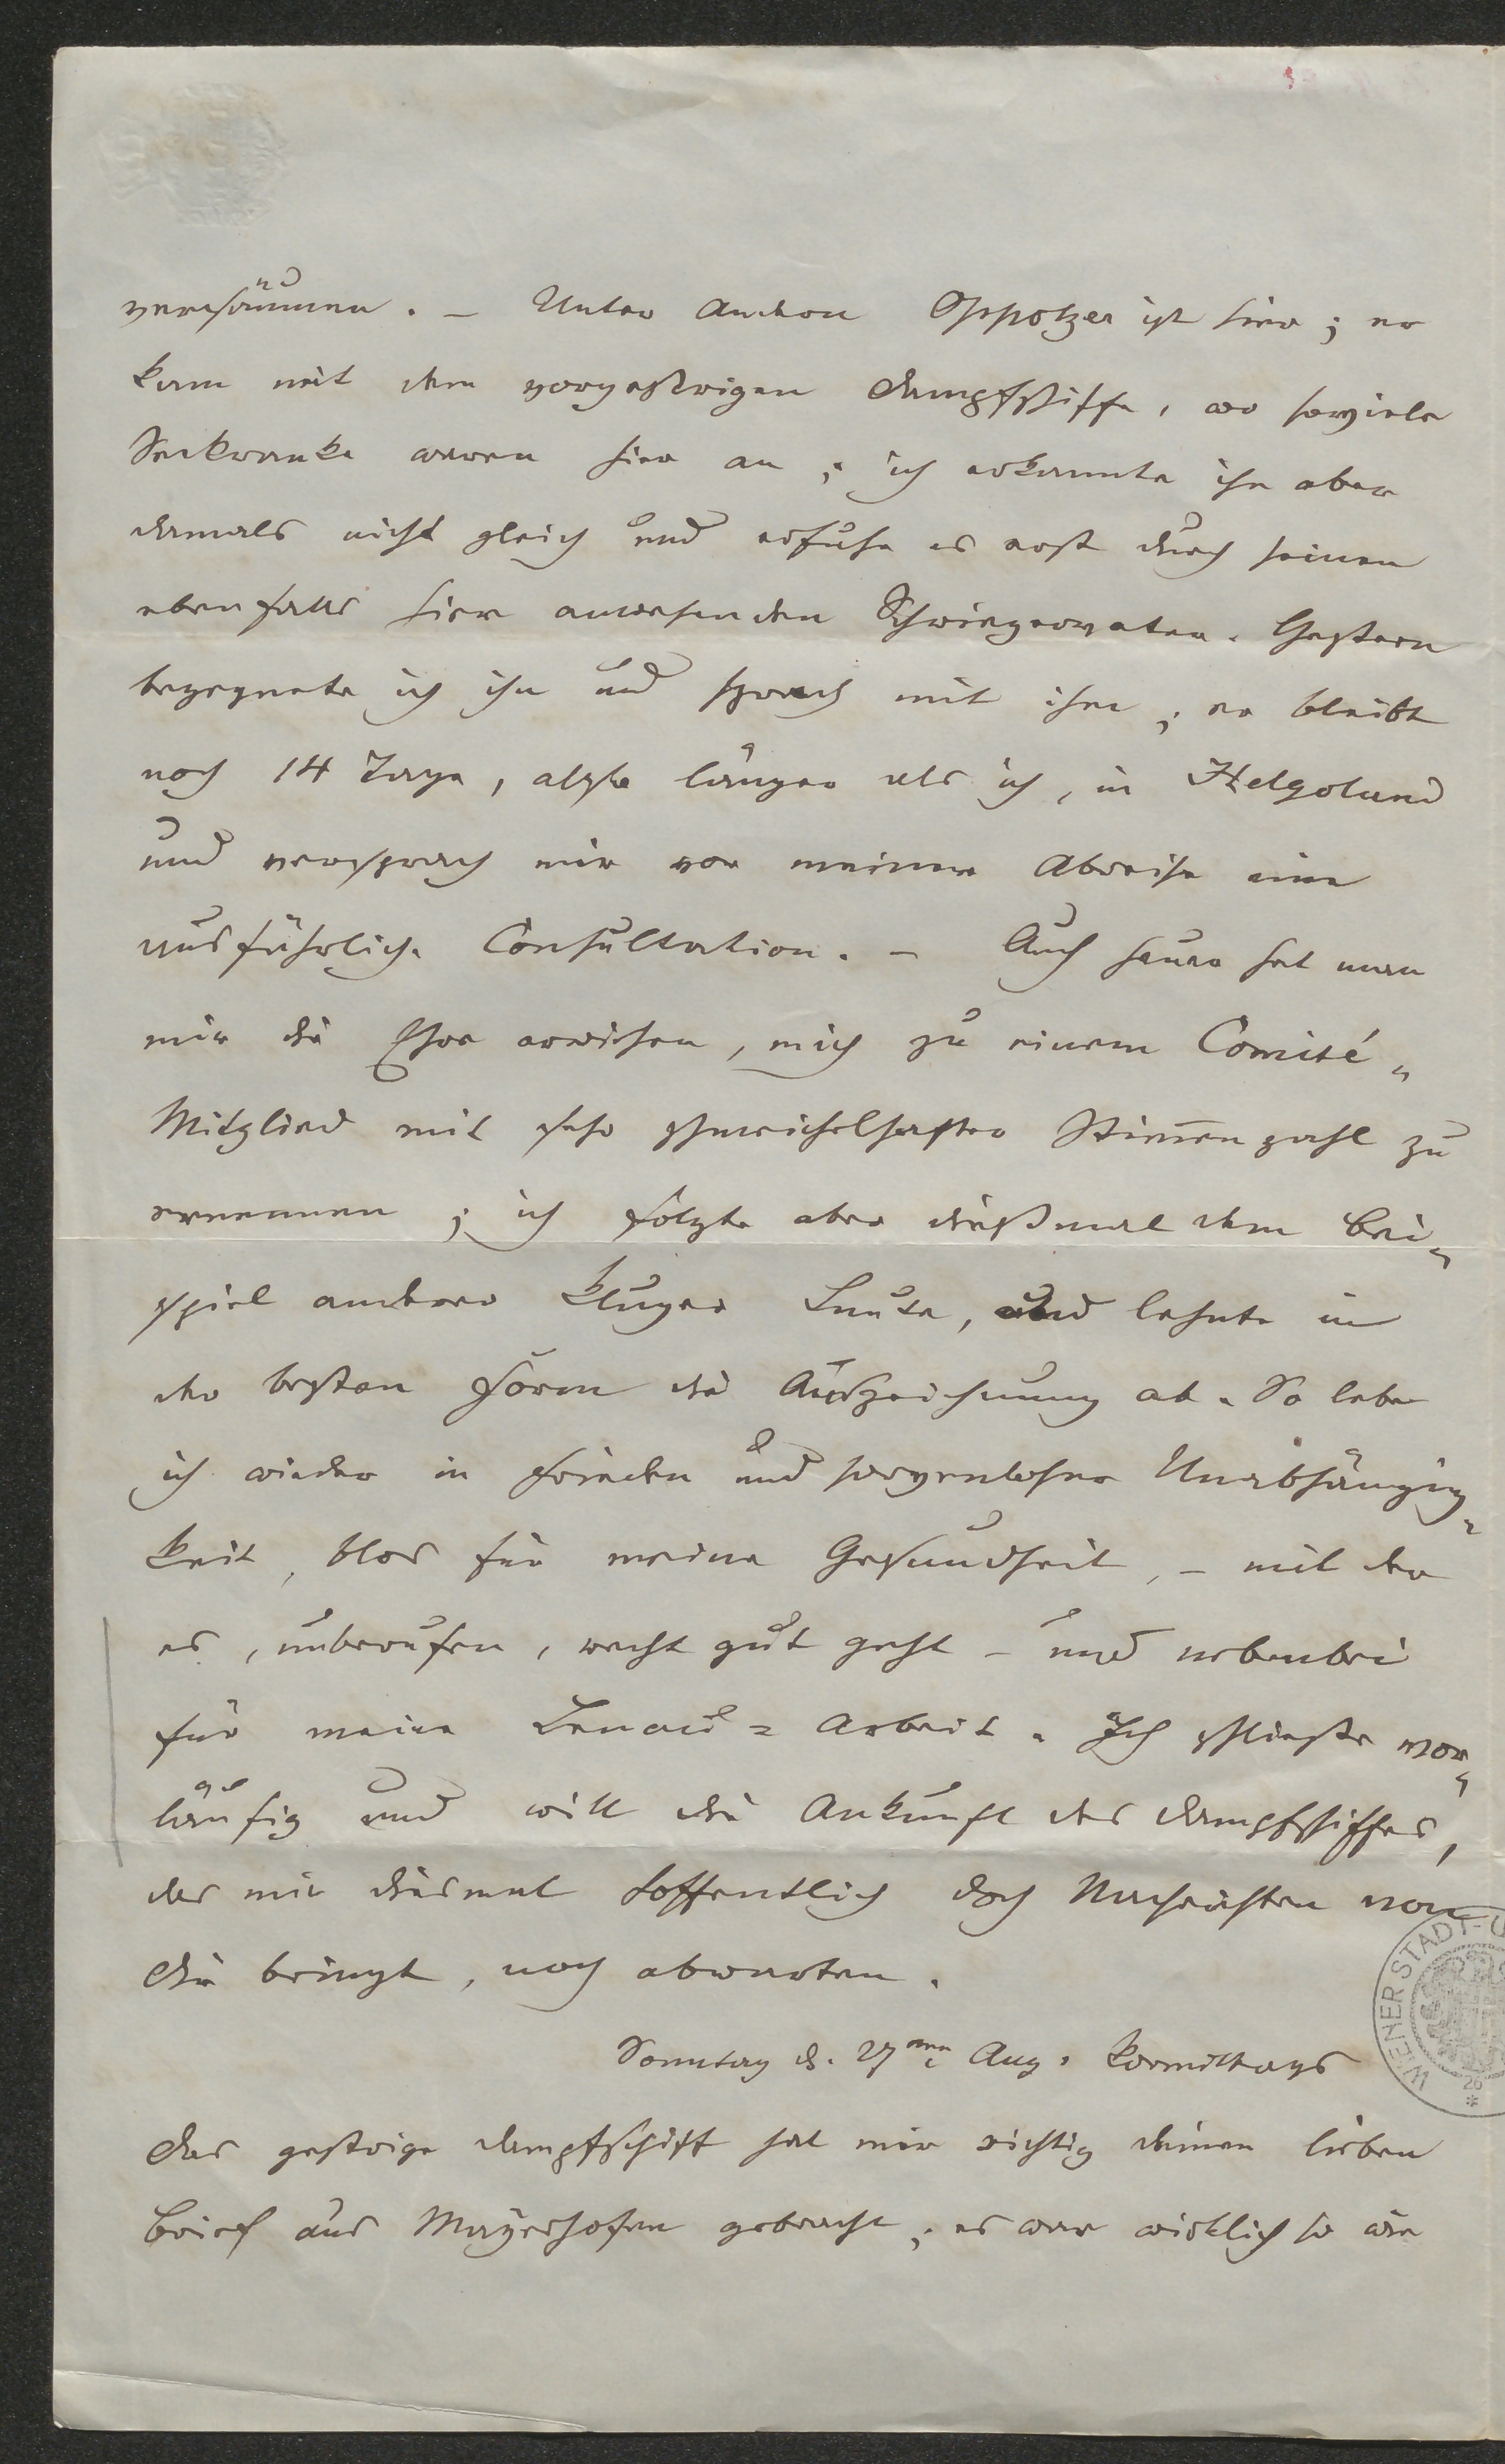 versäumen. – Unter Andern Oppolzer ist hier; er
kam mit dem vorgestrigen Dampfschiffe, wo soviele
Seekranke waren hier an; ich erkannte ihn aber
damals nicht gleich und erfuhr es erst durch seinen
ebenfalls hier anwesenden Schwiegervater. Gestern
begegnete ich ihn und sprach mit ihm; er bleibt
noch 14 Tage, also länger als ich, in Helgoland
und versprach mir vor meiner Abreise eine
ausführliche Consultation. – Auch heuer hat man
mir die Ehre erwiesen, mich zu einem Comité-
Mitglied mit sehr schmeichelhafter Stimmenzahl zu
ernennen; ich folgte aber dießmal dem Bei-
spiel anderer kluger Leute, und lehnte in
der besten Form die Auszeichnung ab. So lebe
ich wieder in Frieden und sorgenloser Unabhängig-
keit, blos für meine Gesundheit, – mit der
es, unberufen, recht gut geht – und nebenbei
für meine Lenau-Arbeit. Ich schließe vor-
läufig und will die Ankunft des Dampfschiffes,
das mir diesmal hoffentlich doch Nachrichten von
Dir bringt, noch abwarten.
Sonntag d. 27ten Aug. Vormittags
Das gestrige Dampfschiff hat mir richtig deinen lieben
Brief aus Mayerhofen gebracht; es war wirklich so wie
WIENER STADT-
26